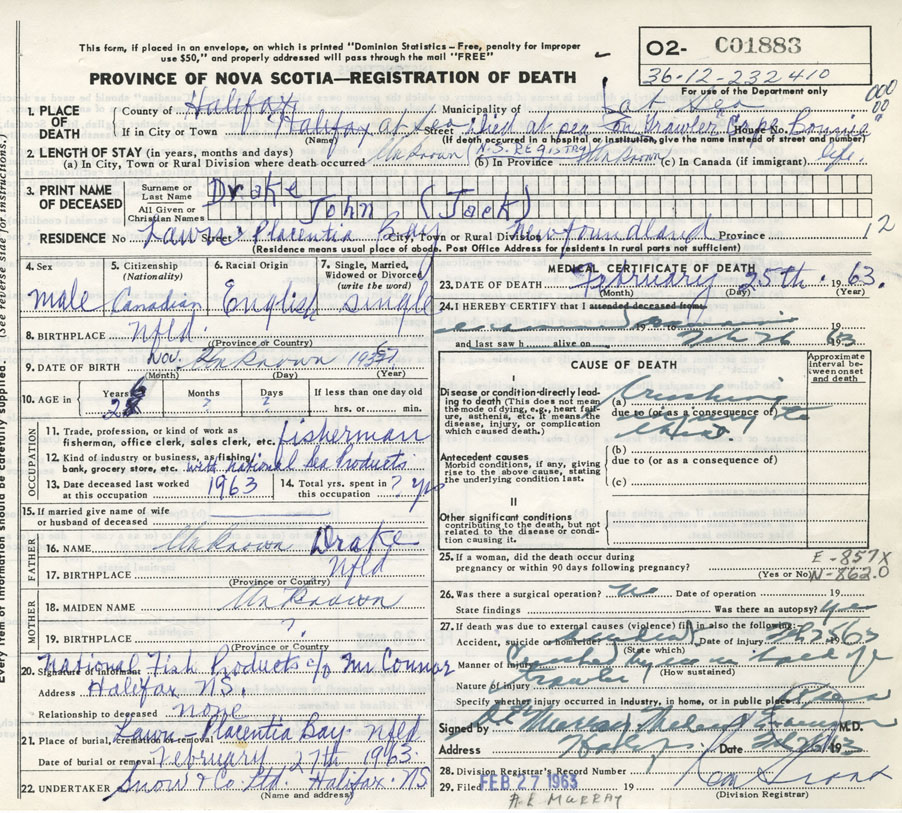 This form, if placed in an envelope, on which is printed "Dominion Statistics - Free, penalty for improper
use $50," and properly addressed will pass through the mail "FREE"
PROVINCE OF NOVA SCOTIA—REGISTRATION OF DEATH
O2- C01883
36-12-232410
For use of the Department only
000
00
(See reverse side for instructions.)
Every item of information should be carefully supplied.
1. PLACE OF DEATH
County of Halifax Municipality of at Sea
If in City or Town Halifax at Sea Street Died at sea on Trawler Cape Bonnie House No.
(Name) (If death occurred in a hospital or institution, give the name instead of street and number)
2. LENGTH OF STAY (in years, months and days) N.S. REGISTRY
(a) In City, Town or Rural Division where death occurred Unknown (b) In Province Unknown (c) In Canada (if immigrant) life.
3. PRINT NAME OF DECEASED
Surname or Last Name Drake
All Given or Christian Names John (Jack)
RESIDENCE No Lawn Street Placentia Bay City, Town or Rural Division Newfoundland Province 12
(Residence means usual place of abode. Post Office Address for residents in rural parts not sufficient)
4. Sex 5. Citizenship (Nationality) 6. Racial Origin 7. Single, Married, Widowed or Divorced (write the word)
male Canadian English single
8. BIRTHPLACE Nfld.
(Province or Country)
9. DATE OF BIRTH Nov. Unknown 19
(Month) (Day) (Year)
10. AGE in Years Months Days If less than one day old
2 ? ? hrs. or min.
OCCUPATION
11. Trade, profession, or kind of work as fisherman, office clerk, sales clerk, etc. fisherman
12. Kind of industry or business, as fishing, bank, grocery store, etc. with National Sea Products
13. Date deceased last worked at this occupation 1963 14. Total yrs. spent in this occupation ? yrs
15. If married give name of wife or husband of deceased
FATHER
16. NAME Unknown Drake
17. BIRTHPLACE Nfld
(Province or Country)
MOTHER
18. MAIDEN NAME Unknown
19. BIRTHPLACE ?
(Province or Country)
20. Signature of informant National Fish Products c/o Mr Connor
Address Halifax NS.
Relationship to deceased none
21. Place of burial, cremation or removal Lawn - Placentia Bay. Nfld
Date of burial or removal February 27th 1963.
22. UNDERTAKER Snow & Co Ltd. Halifax. NS
(Name and address)
MEDICAL CERTIFICATE OF DEATH
23. DATE OF DEATH February 25th. 1963.
(Month) (Day) (Year)
24. I HEREBY CERTIFY that I attended deceased from
19 to 19
and last saw h alive on Feb 26 1963
CAUSE OF DEATH
Approximate interval between onset and death
I
Disease or condition directly leading to death (This does not mean the mode of dying, e.g., heart failure, asthenia, etc. It means the disease, injury, or complication which caused death.)
(a) Crushing
due to (or as a consequence of) injury to
chest
Antecedent causes
Morbid conditions, if any, giving rise to the above cause, stating the underlying condition last.
(b)
due to (or as a consequence of)
(c)
II
Other significant conditions
contributing to the death, but not related to the disease or condition causing it.
25. If a woman, did the death occur during pregnancy or within 90 days following pregnancy? (Yes or No)
E-857X
N-862.0
26. Was there a surgical operation? no Date of operation 19
State findings Was there an autopsy? yes
27. If death was due to external causes (violence) fill in also the following:
Accident, suicide or homicide? accident Date of injury Feb 25 63
(State which)
Manner of injury Crushed by ice in hold of
trawler (How sustained)
Nature of injury
Specify whether injury occurred in industry, in home, or in public place
Signed by M.D.
Address Halifax Date 1963
28. Division Registrar's Record Number
29. Filed FEB 27 1963 19
(Division Registrar)
A.E MURRAY